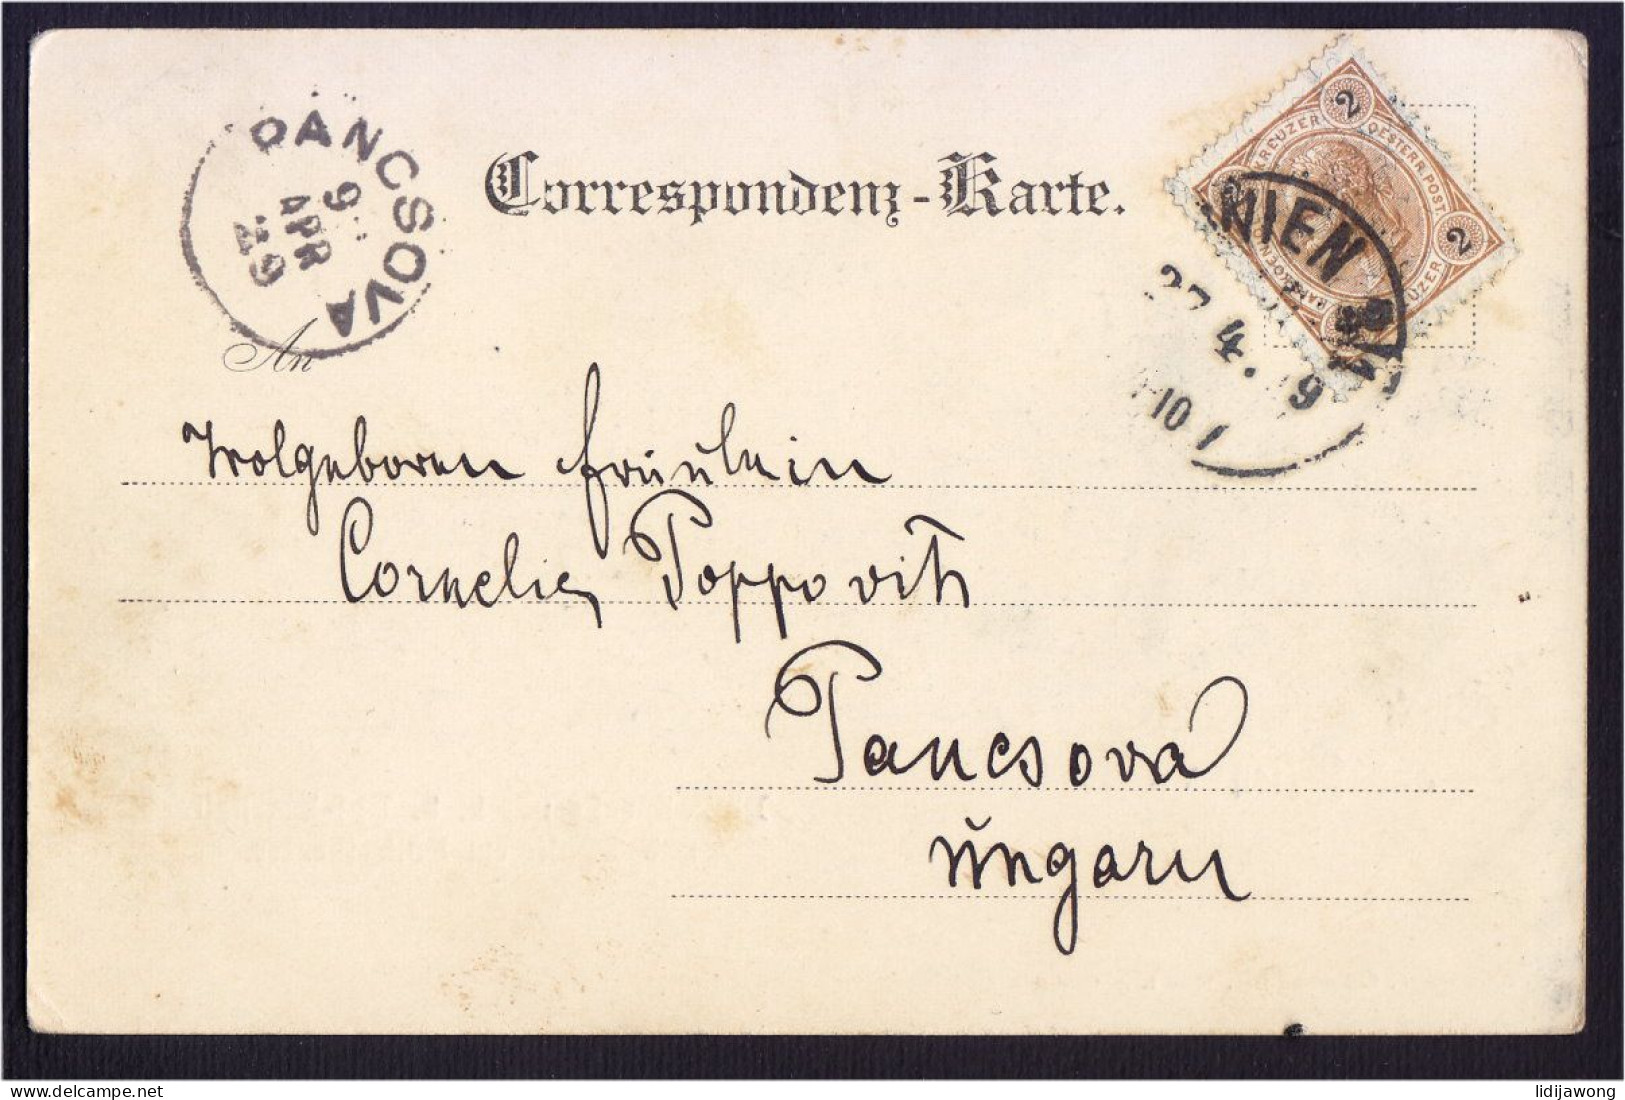 Correspondenz-Karte.
PANCSOVA
9
APR
29
2 KREUZER
OESTERR. POST.
2
WIEN
27 4. 9
10
An
Wolgeboren Fräulein
Cornelie Poppovits
Pancsova
Ungarn
lidijawong